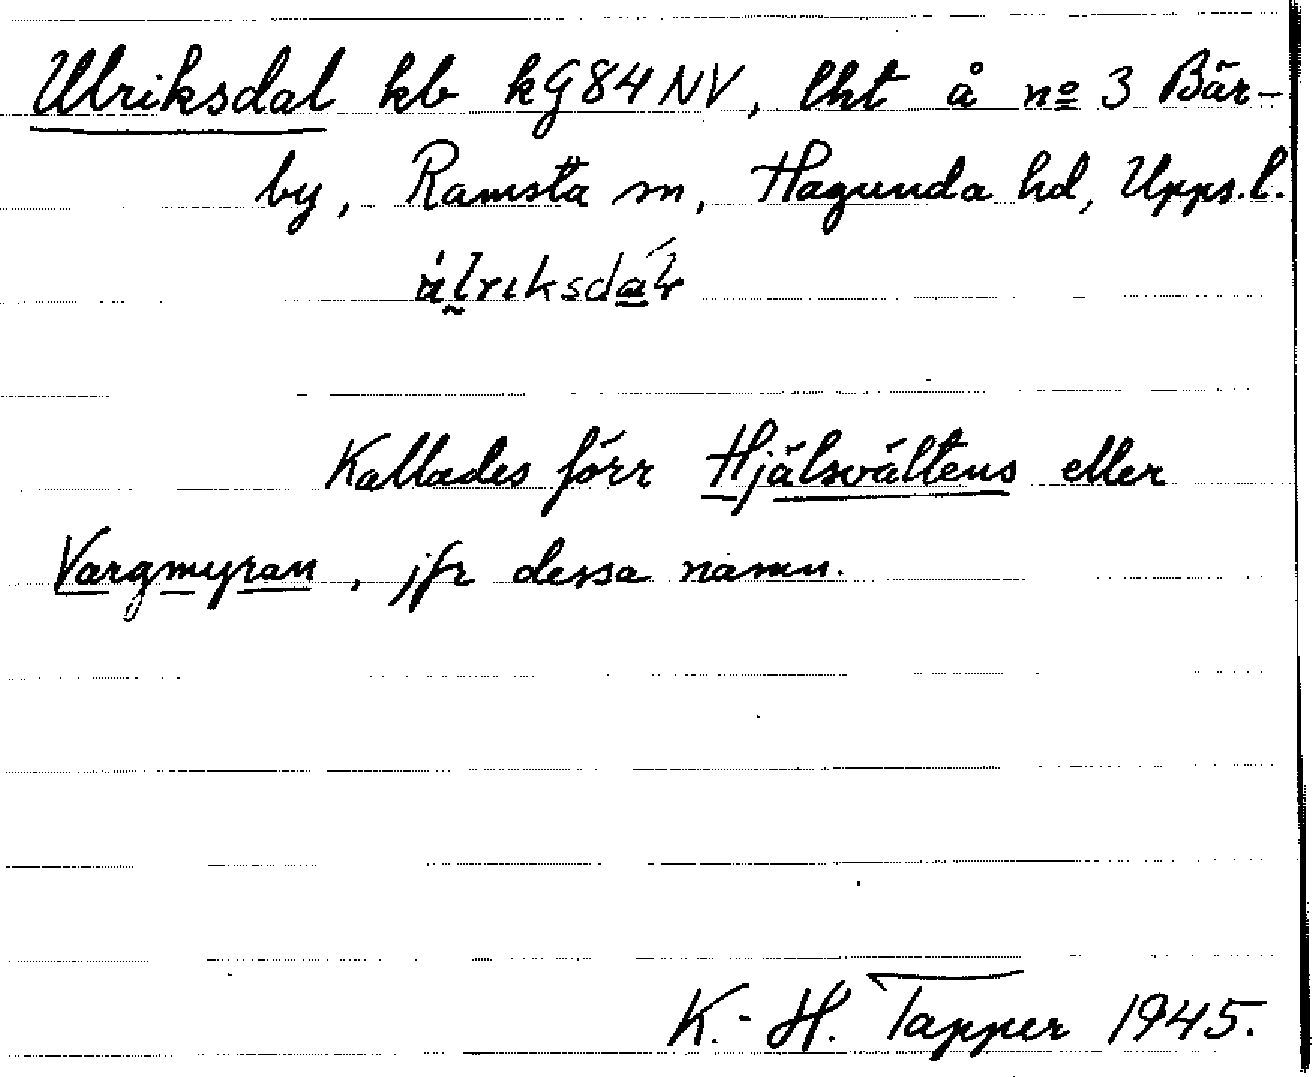 Ulriksdal kb kG84NV, lht å nº 3 Bär-
by, Ramsta sn, Hagunda hd, Upps.l.
Kallades förr Hjälsvältens eller
Vargmyran, jfr dessa namn.
K.-H. Tapper 1945.